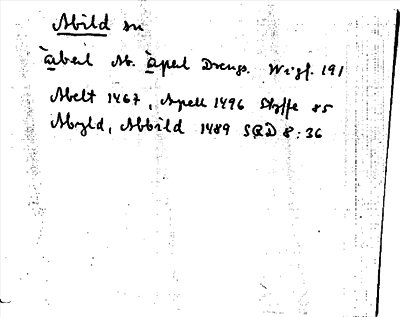 Abild sn
àbeil Ab. àpel Drengs. Wigf. 191
Abelt 1467, Apell 1496 Styffe 85
Abyld, Abbild 1489 SRD 8:36